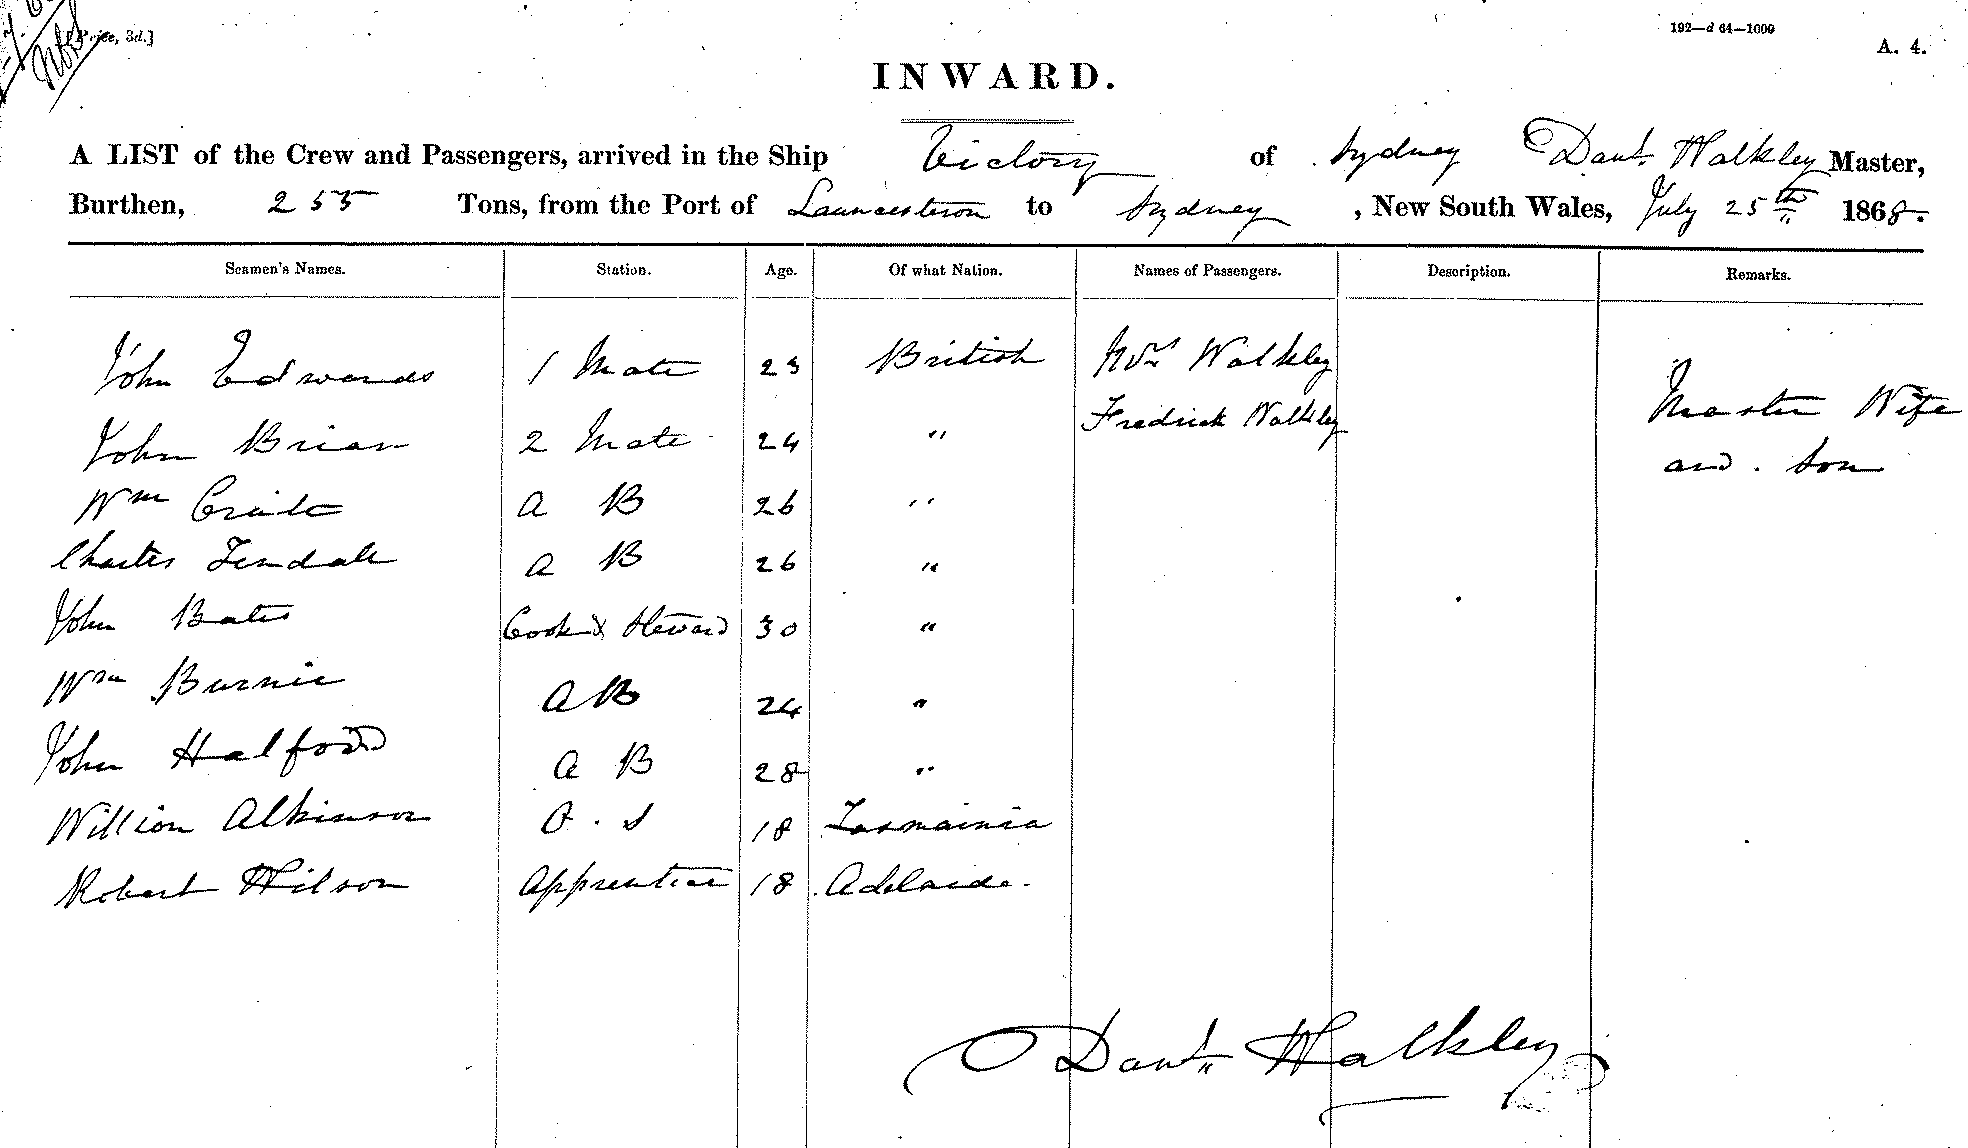 Price, 3d.]
192—d 64—1000
A. 4.
INWARD.
A LIST of the Crew and Passengers, arrived in the Ship Victory of Sydney Danl. Walkley Master,
Burthen, 255 Tons, from the Port of Launcesteron to Sydney, New South Wales, July 25th 1868.
Seamen's Names. Station. Age. Of what Nation. Names of Passengers. Description. Remarks.
John Edwards 1 Mate 23 British Mrs Walkley
Fredrick Walkley Master Wife
John Brian 2 Mate 24 "
and son
Wm A B 26 "
Charles Tendall A B 26 "
John Bates Cook & Steward 30 "
Wm Burnie A B 24 "
John Halford A B 28 "
William Alkinson O. S 18 Tasmainia
Robert Wilson Apprentice 18 Adelaide.
Danl. Walkley